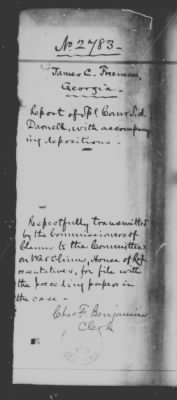 No 2783-
James C. Freeman,
Georgia.
Report of Spl Com. S.d.
Darnell, with accompany
ing depositions.
Respectfully transmitted
by the Commissioners of
Claims to the Committee
on War Claims, House of Rep
resentatives, for file with
the preceding papers in
the case.
Chas. F. Benjamin
Clerk